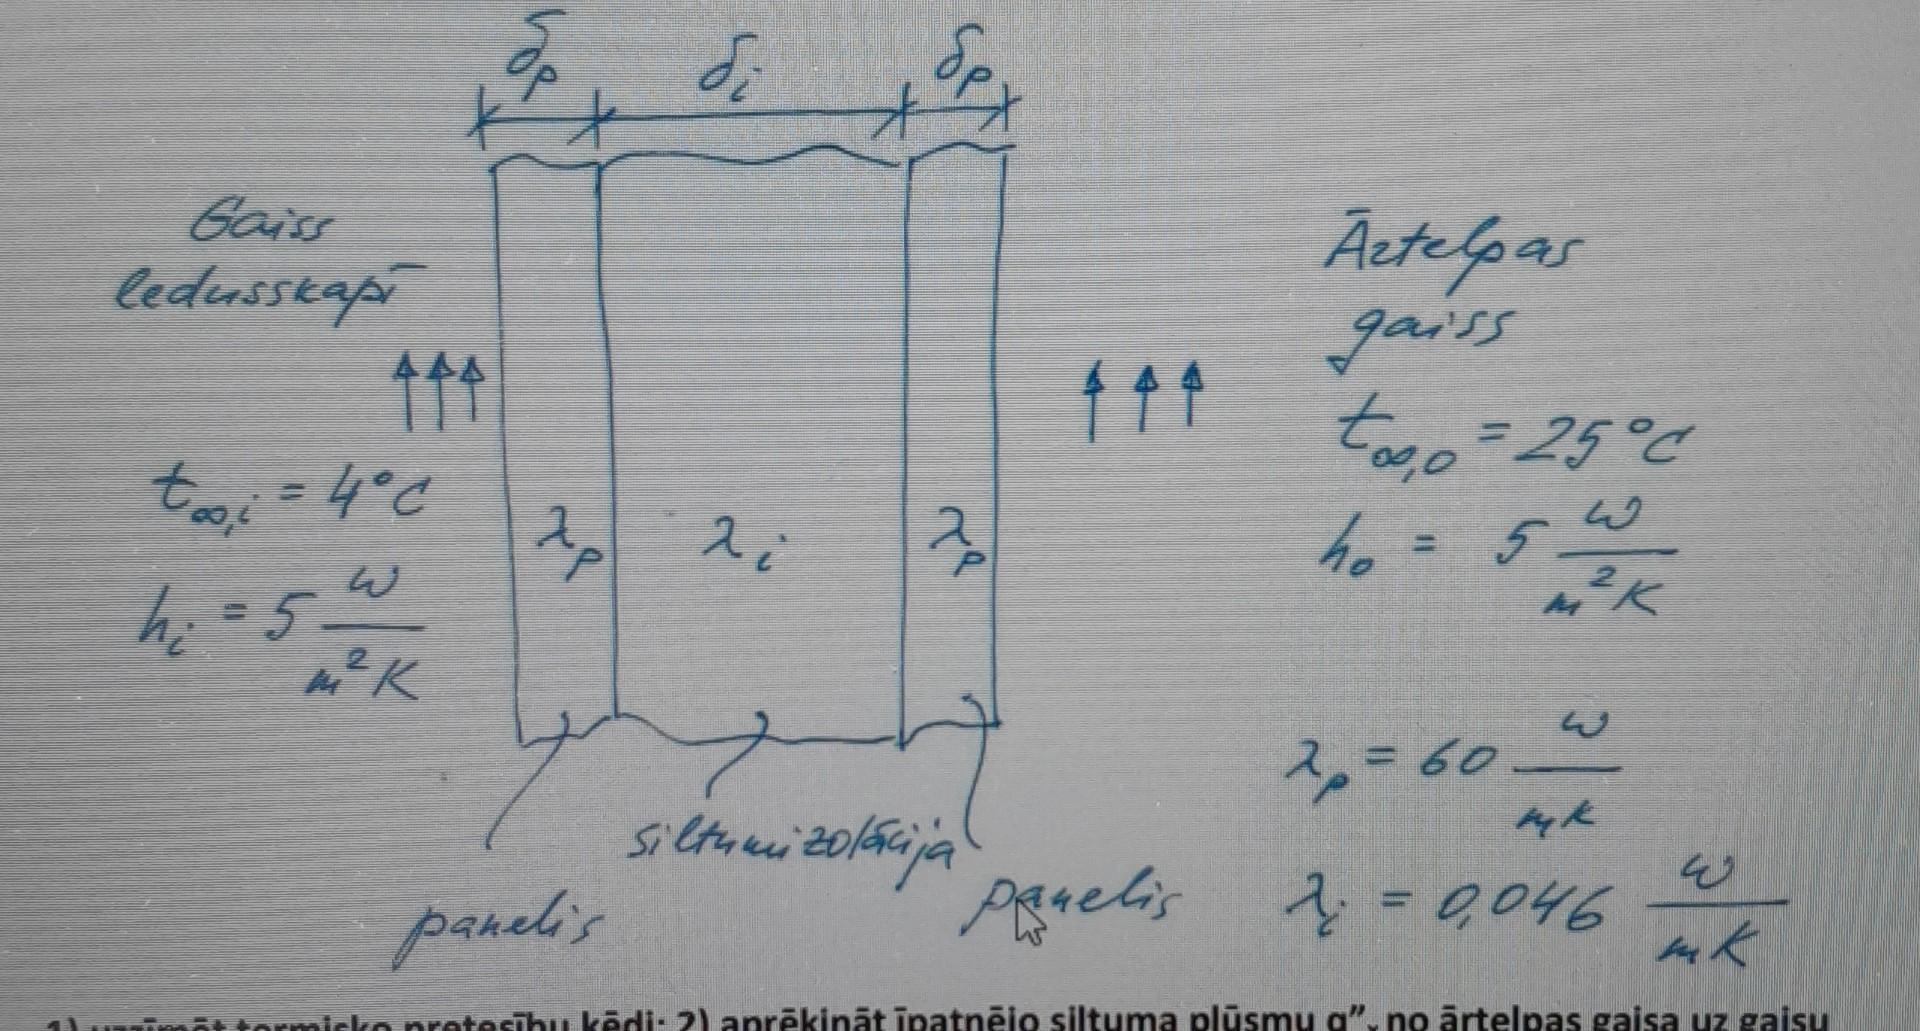 δp δi δp
Gaiss
ledusskapī
t∞,i = 4°C
hi = 5 W/m²K
λp λi λp
Ārtelpas
gaiss
t∞,o = 25°C
ho = 5 W/m²K
λp = 60 W/mK
λi = 0,046 W/mK
siltumizolācija
panelis
panelis
1) uzzīmēt termisko pretestību ķēdi; 2) aprēķināt īpatnējo siltuma plūsmu q”, no ārtelpas gaisa uz gaisu